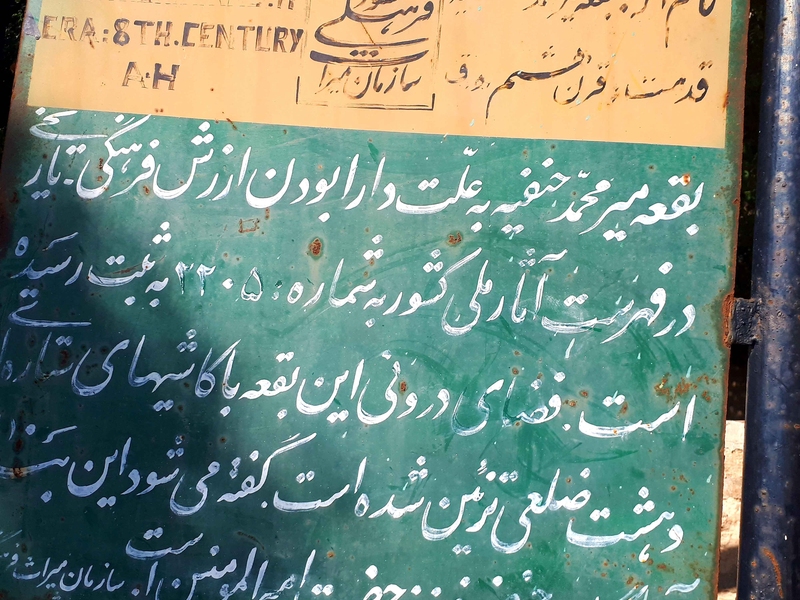 AERA: 8TH.CENTURY
A.H
فرهنگی
سازمان میراث
قدمت: قرن هشتم ه.ق
بقعه میر محمّد حنفیه به علّت دارا بودن ارزش فرهنگی-تاریخی
در فهرست آثار ملی کشور به شماره ۲۲۰۵ به ثبت رسیده
است. فضای درونی این بقعه با کاشیهای ستاره‌ای
و هشت ضلعی تزئین شده است. گفته می شود این
است
سازمان میراث